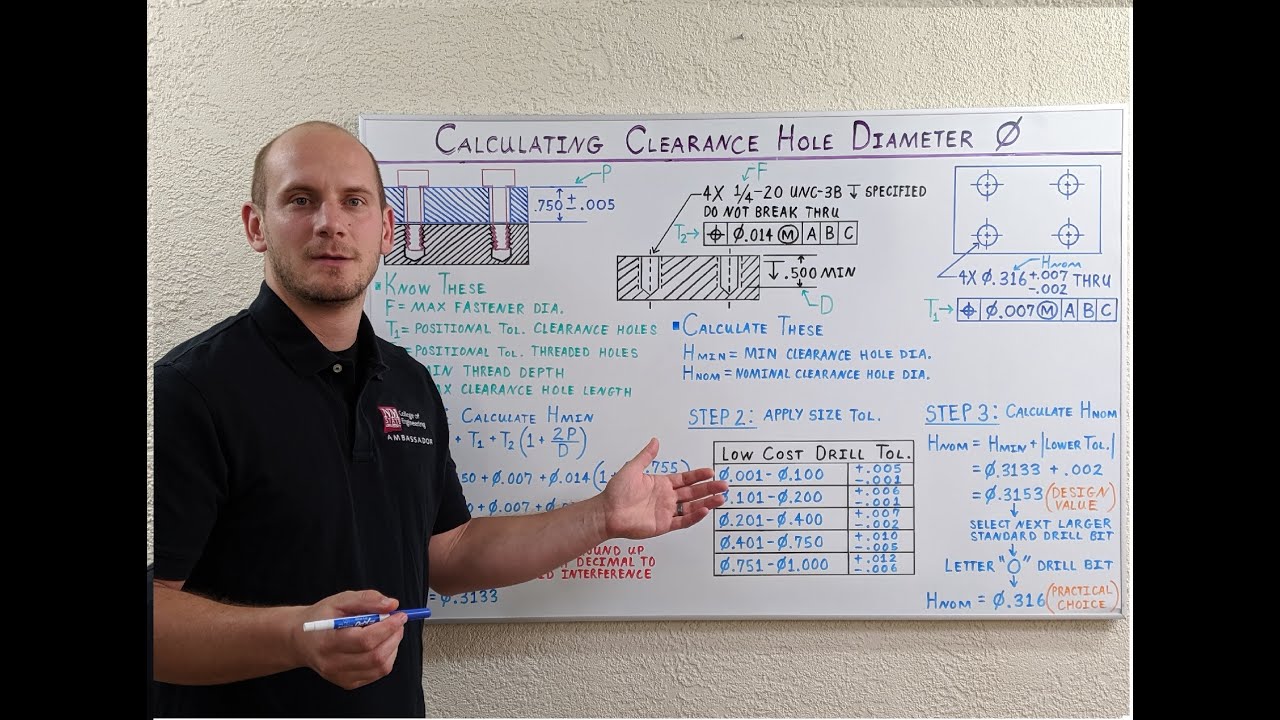 CALCULATING CLEARANCE HOLE DIAMETER Ø
P
.750 ± .005
F
4X 1/4-20 UNC-3B ↧ SPECIFIED
DO NOT BREAK THRU
T2→ ⌖ Ø.014 Ⓜ A B C
↧ .500 MIN
D
HNOM
4X Ø.316 +.007 -.002 THRU
T1→ ⌖ Ø.007 Ⓜ A B C
KNOW THESE
F = MAX FASTENER DIA.
T1 = POSITIONAL TOL. CLEARANCE HOLES
= POSITIONAL TOL. THREADED HOLES
THREAD DEPTH
CLEARANCE HOLE LENGTH
CALCULATE THESE
HMIN = MIN CLEARANCE HOLE DIA.
HNOM = NOMINAL CLEARANCE HOLE DIA.
: CALCULATE HMIN
+ T1 + T2 (1 + 2P/D)
50 + Ø.007 + Ø.014 (1 + .755)
+ Ø.007 +
ROUND UP
DECIMAL TO
INTERFERENCE
= Ø.3133
STEP 2: APPLY SIZE TOL.
LOW COST DRILL TOL.
Ø.001 - Ø.100 +.005 -.001
.101 - Ø.200 +.006 -.001
Ø.201 - Ø.400 +.007 -.002
Ø.401 - Ø.750 +.010 -.005
Ø.751 - Ø1.000 +.012 -.006
STEP 3: CALCULATE HNOM
HNOM = HMIN + |LOWER TOL.|
= Ø.3133 + .002
= Ø.3153 (DESIGN VALUE)
↓
SELECT NEXT LARGER
STANDARD DRILL BIT
↓
LETTER "O" DRILL BIT
↓
HNOM = Ø.316 (PRACTICAL CHOICE)
College of
Engineering
AMBASSADOR